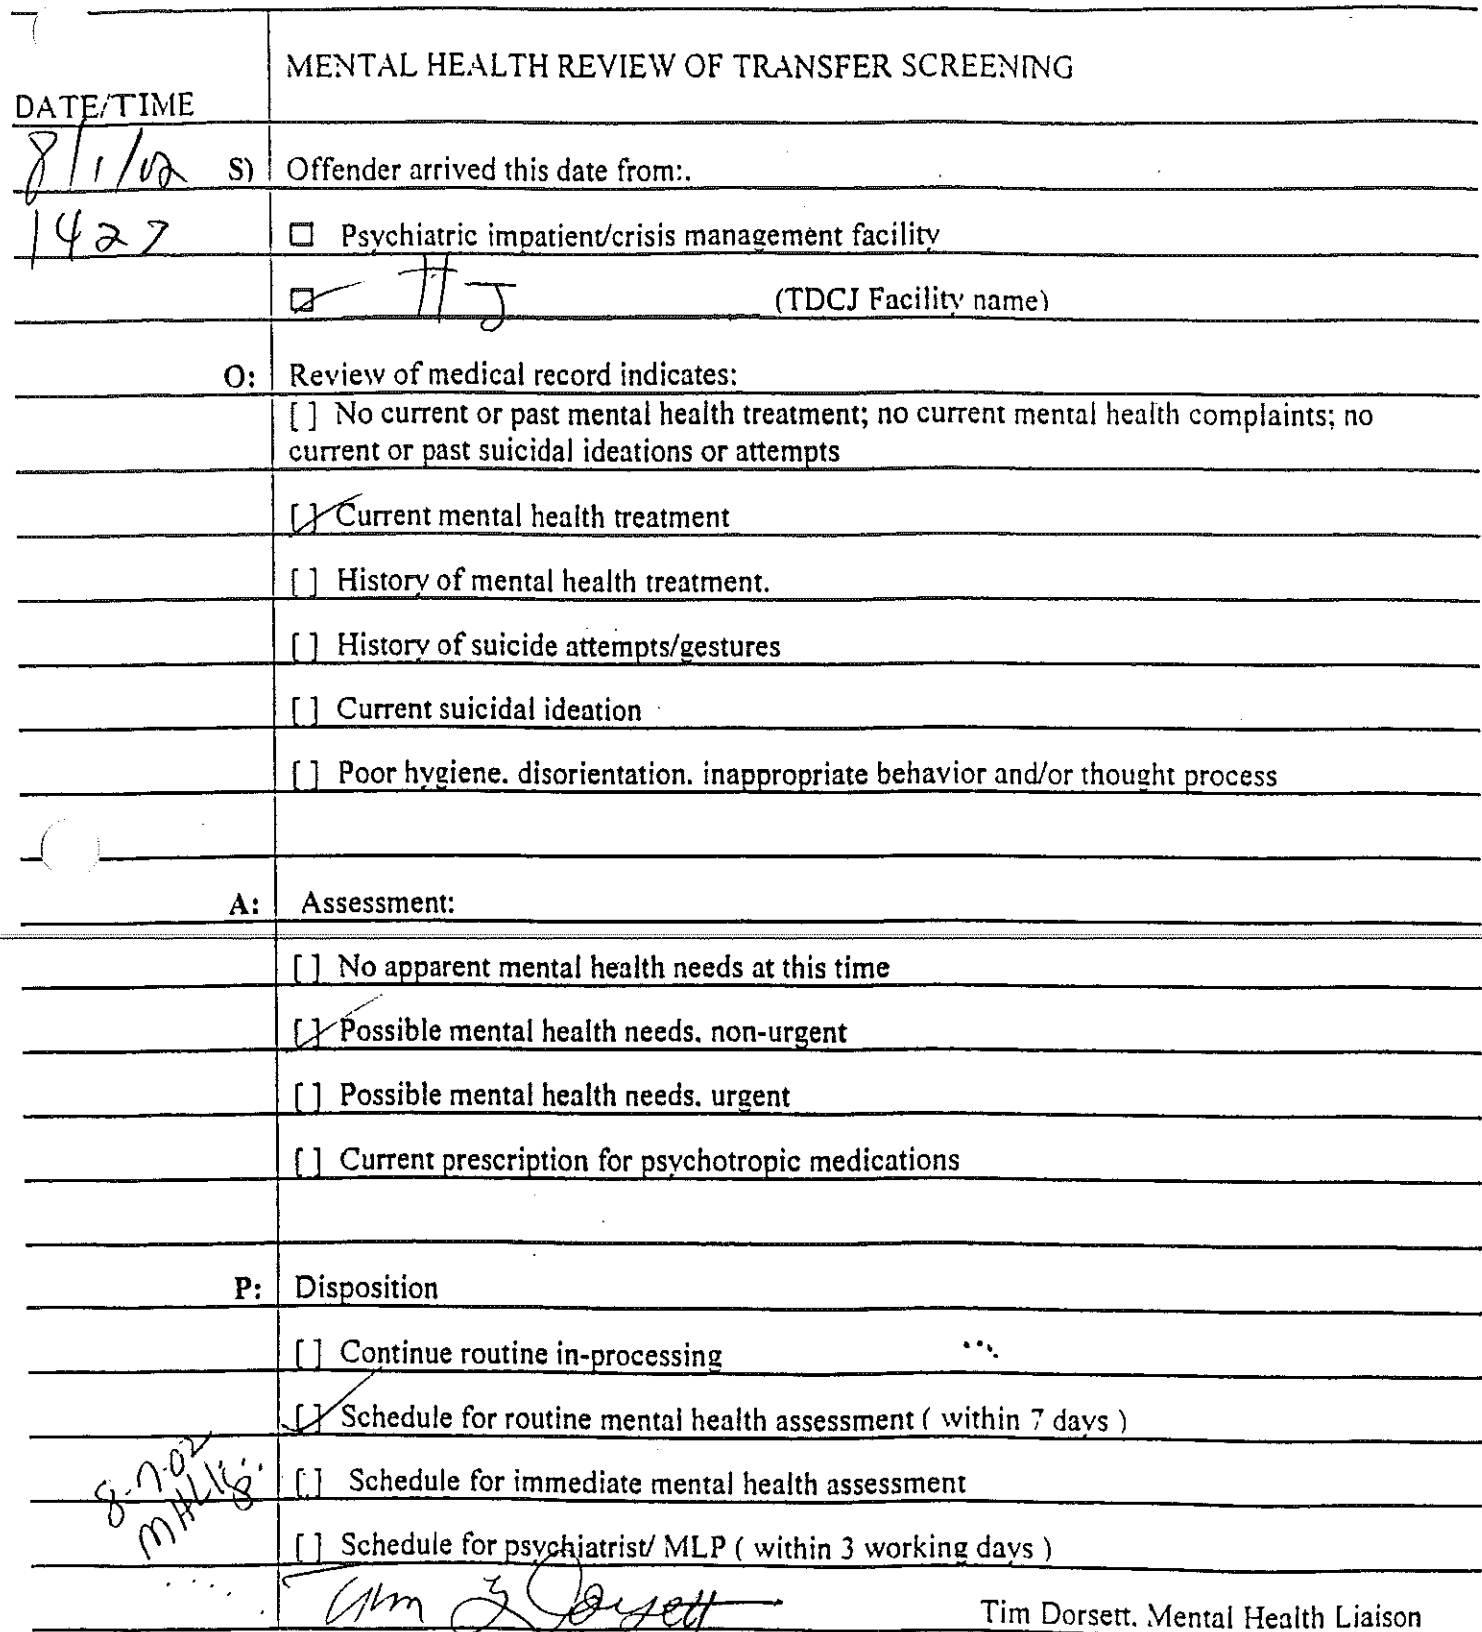 MENTAL HEALTH REVIEW OF TRANSFER SCREENING
DATE/TIME
8/1/02 S) Offender arrived this date from:.
1427 □ Psychiatric impatient/crisis management facility
☑ (TDCJ Facility name)
O: Review of medical record indicates:
[ ] No current or past mental health treatment; no current mental health complaints; no
current or past suicidal ideations or attempts
[✓] Current mental health treatment
[ ] History of mental health treatment.
[ ] History of suicide attempts/gestures
[ ] Current suicidal ideation
[ ] Poor hygiene. disorientation. inappropriate behavior and/or thought process
A: Assessment:
[ ] No apparent mental health needs at this time
[✓] Possible mental health needs. non-urgent
[ ] Possible mental health needs. urgent
[ ] Current prescription for psychotropic medications
P: Disposition
[ ] Continue routine in-processing
[✓] Schedule for routine mental health assessment ( within 7 days )
8-7-02
[ ] Schedule for immediate mental health assessment
[ ] Schedule for psychiatrist/ MLP ( within 3 working days )
Tim Dorsett
Tim Dorsett. Mental Health Liaison